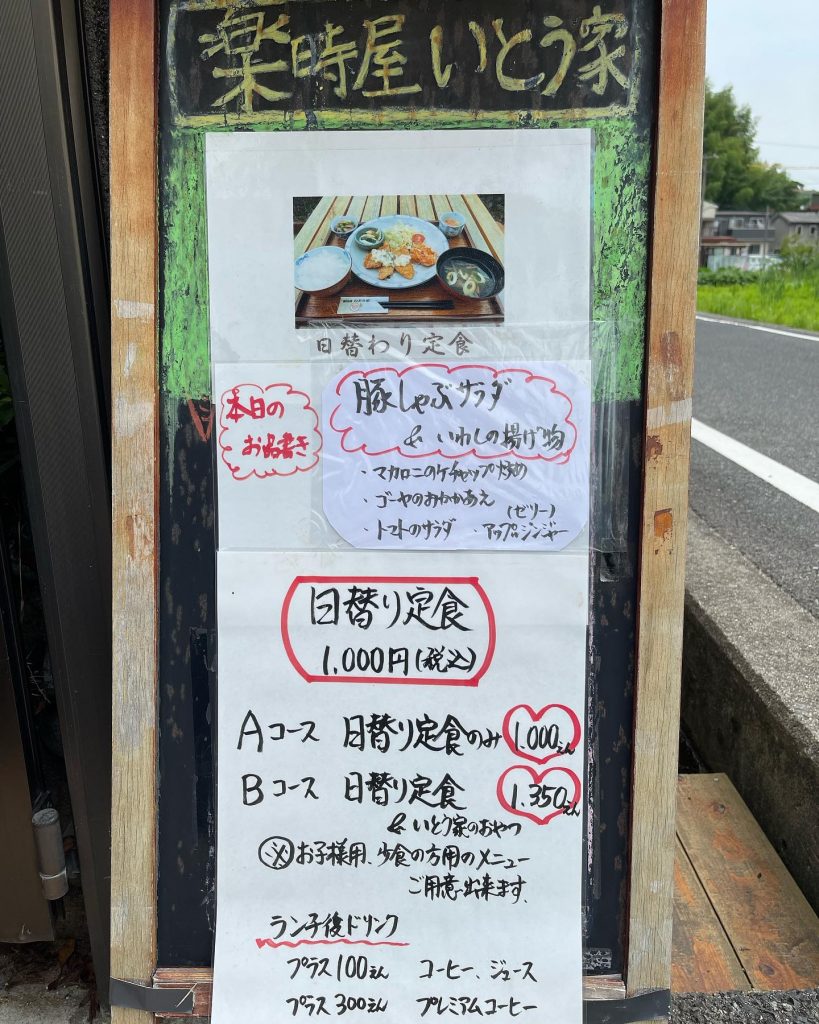 楽時屋いとう家
日替わり定食
本日の
お品書き
豚しゃぶサラダ
& いわしの揚げ物
・マカロニのケチャップ炒め
・ゴーヤのおかかあえ
(ゼリー)
・トマトのサラダ ・アップルジンジャー
日替り定食
1,000円(税込)
Aコース 日替り定食のみ 1.000えん
Bコース 日替り定食 1.350えん
& いとう家のおやつ
※お子様用、少食の方用のメニュー
ご用意出来ます。
ランチ後ドリンク
プラス100えん コーヒー、ジュース
プラス300えん プレミアムコーヒー